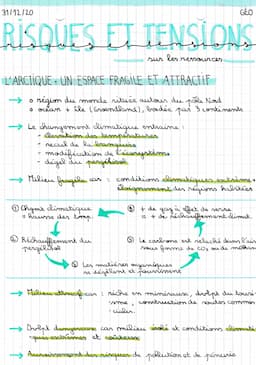 31/12/20 GÉO
RISQUES ET TENSIONS
sur les ressources
L'ARCTIQUE : UN ESPACE FRAGILE ET ATTRACTIF
→ o région du monde située autour du pôle Nord
o océan + île (Groenland), bordée par 3 continents
→ Le changement climatique entraîne :
- élévation des températures
- recul de la banquise
- modification de l'écosystème
- dégel du pergélisol
→ Milieu fragile car : conditions climatiques extrêmes +
éloignement des régions habitées
① Chgmt climatique
= hausse des temp.
② Réchauffement du
pergélisol
③ Les matières organiques
se dégèlent et pourrissent
④ Le carbone est relâché dans l'air
sous forme de CO₂ ou de méthane
+ de gaz à effet de serre
= + de réchauffement climat.
→ Milieu attractif car : riche en minéraux, dvlpt du touri-
sme, construction de routes commer-
-ciales.
→ Dvlpt dangereux car milieu isolé et conditions climati-
-ques extrêmes et coûteux
→ Accroissement des risques de pollution et de pénurie